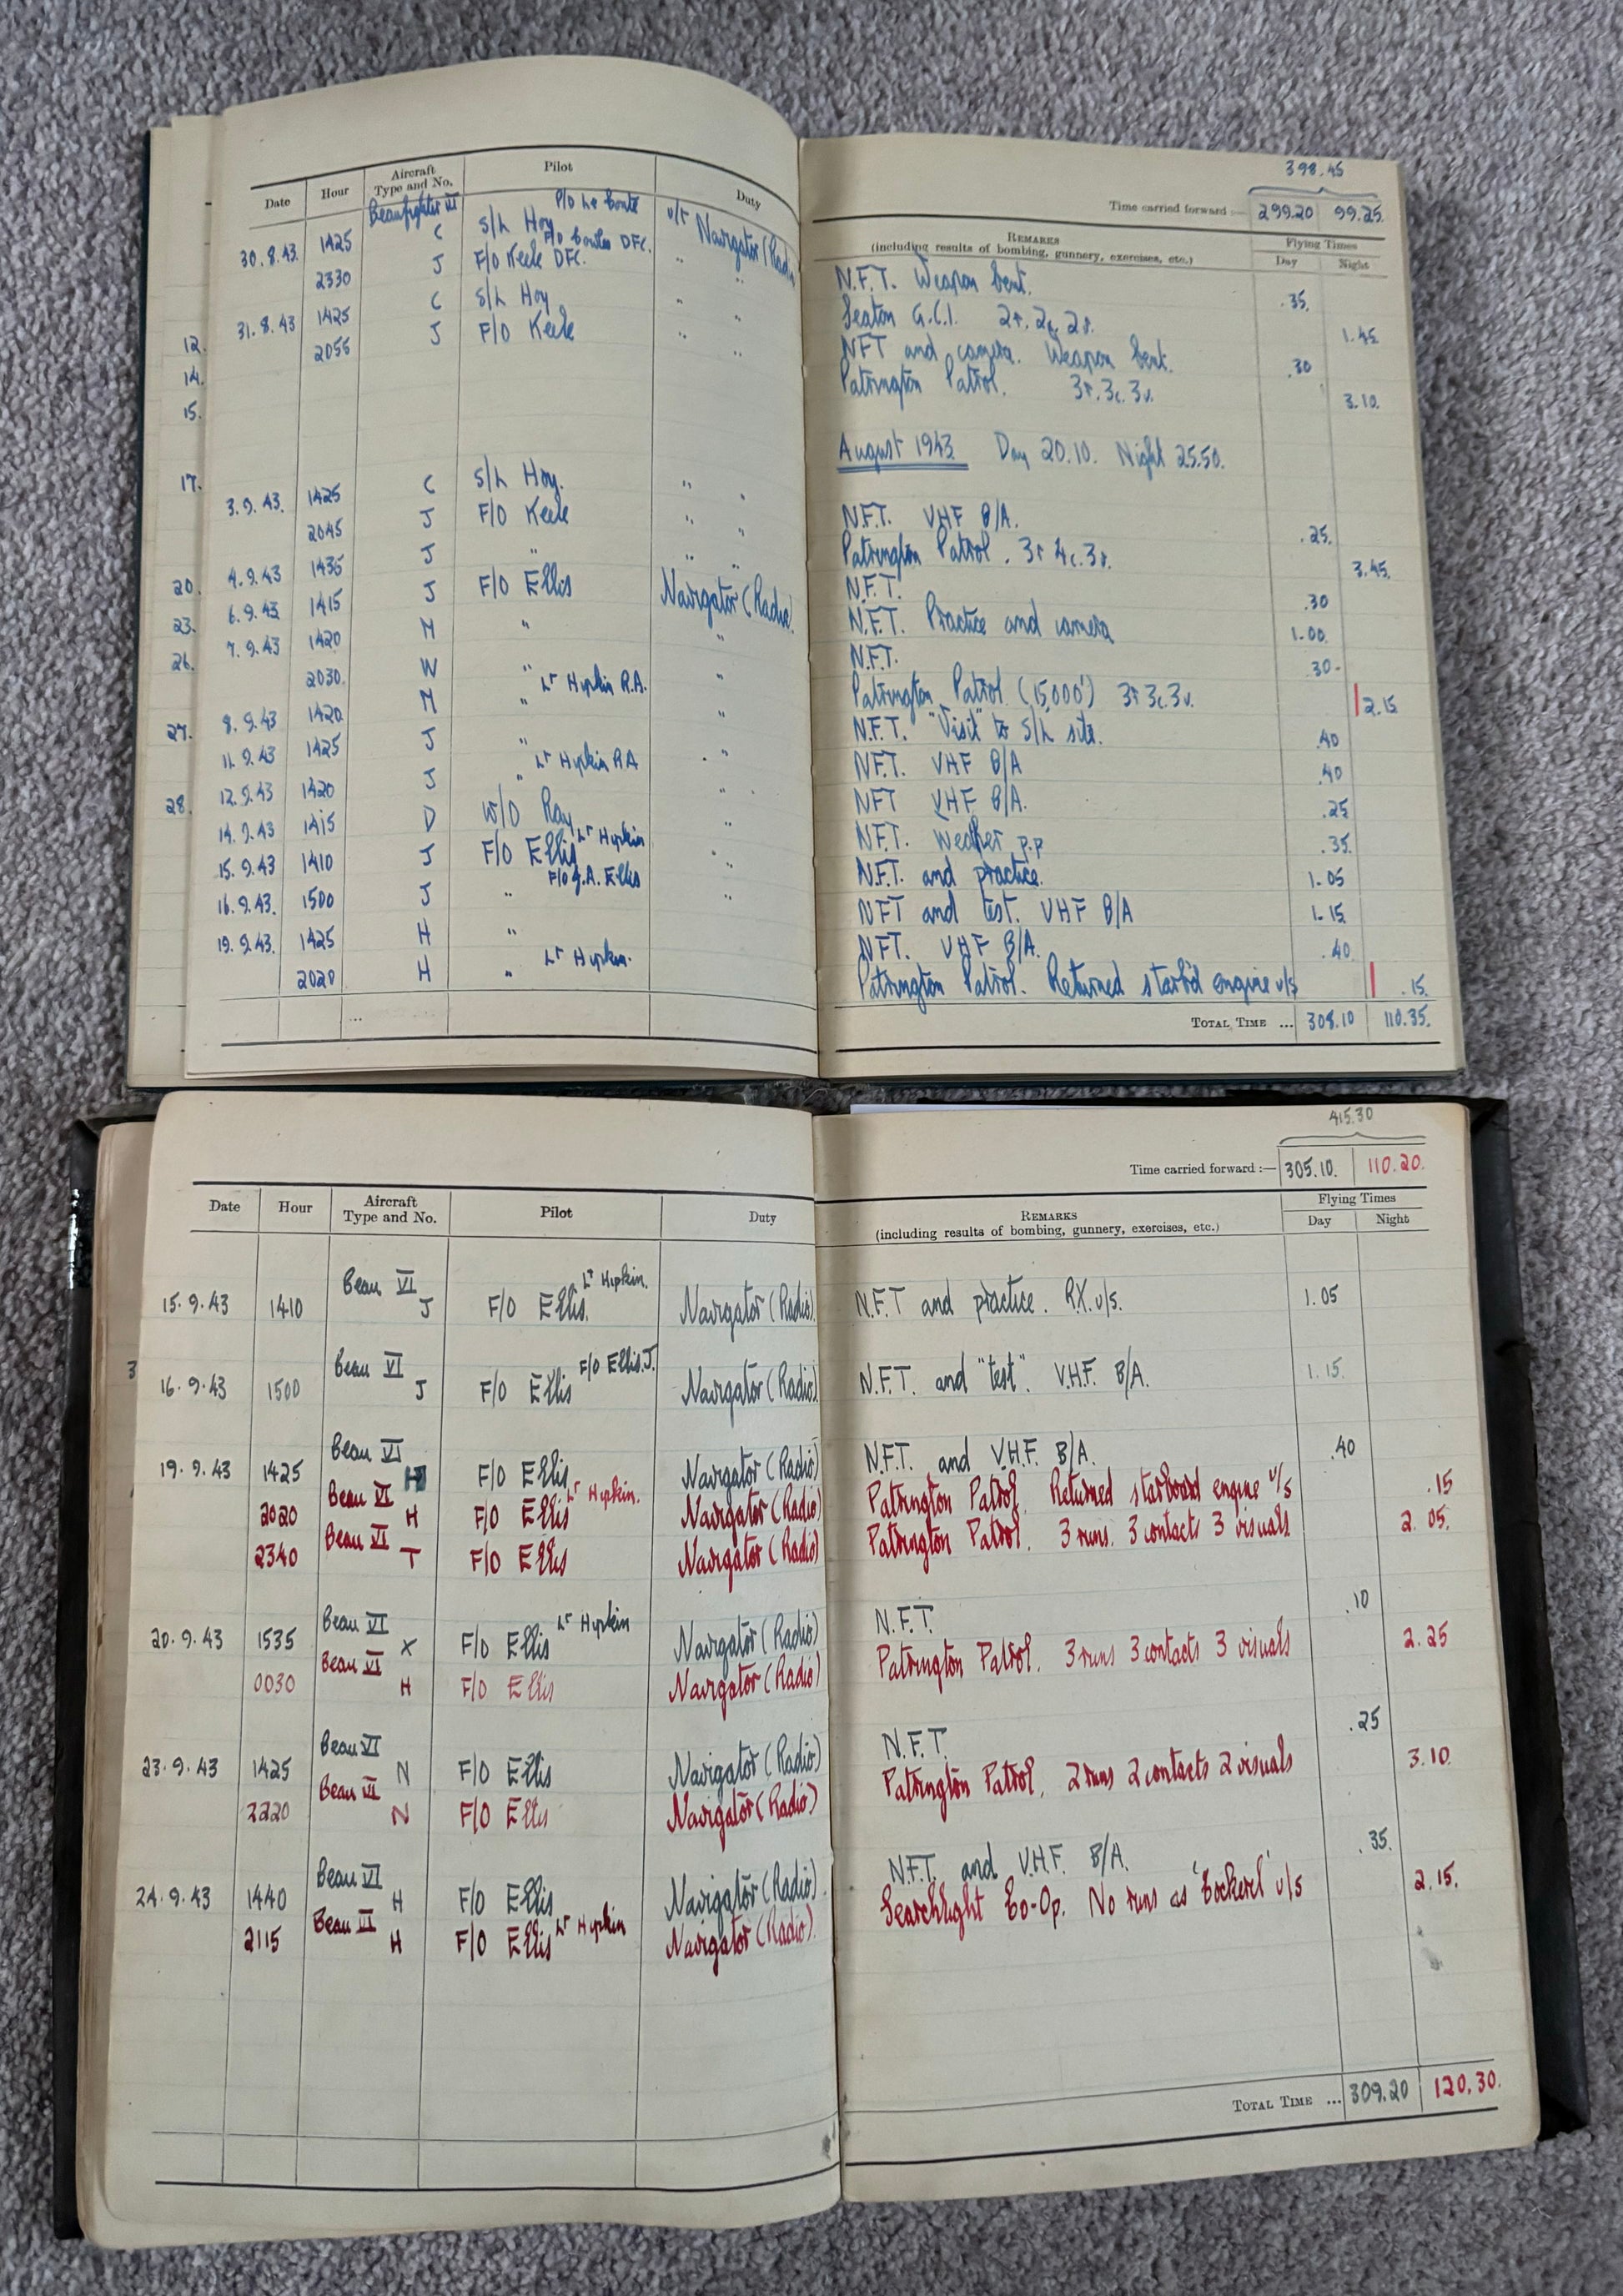 398.45
Time carried forward :— 299.20 99.25.
Date Hour Aircraft Type and No. Pilot Duty
REMARKS (including results of bombing, gunnery, exercises, etc.) Flying Times Day Night
Beaufighter VI P/O Le
30.8.43. 1425 C S/L Hoy u/t Navigator (Radi N.F.T. Weapon bent. .35.
F/O Bowles DFC.
2330 J F/O Keele DFC. " " Seaton G.C.I. 2r. 2c. 2v. 1.45
31.8.43 1425 C S/L Hoy " " NFT and camera. Weapon bent. .30
12. 2055 J F/O Keele " " Patrington Patrol. 3r. 3c. 3v. 3.10.
14.
15.
August 1943 Day 20.10. Night 25.50.
17.
3.9.43. 1425 C S/L Hoy. " " N.F.T. VHF B/A. .25.
2045 J F/O Keele " " Patrington Patrol. 3r 4c. 3v. 3.45.
20. 4.9.43 1435 J " " " N.F.T. .30
23. 6.9.43 1415 J F/O Ellis Navigator (Radio). N.F.T. Practice and camera 1.00.
26. 7.9.43 1420 M " " N.F.T. .30-
2030. W " Lt Hipkin R.A. " Patrington Patrol (15,000') 3r 3c. 3v. 2.15
27. 8.9.43 1420 M " " N.F.T. "Visit" to S/L site. .40
11.9.43 1425 J " " N.F.T. VHF B/A .40
12.9.43 1420 J " Lt Hipkin RA " NFT VHF B/A. .25
28. 14.9.43 1415 D W/O Ray " N.F.T. Weather p.p .35.
15.9.43 1410 J F/O Ellis Lt Hipkin " N.F.T. and practice. 1.05
16.9.43. 1500 J " F/O J.A. Ellis " NFT and test. VHF B/A 1.15
19.9.43. 1425 H " NFT. VHF B/A. .40
2020 H " Lt Hipkin. Patrington Patrol. Returned starb'd engine u/s .15.
TOTAL TIME ... 308.10 110.35.
415.30
Time carried forward :— 305.10. 110.20.
Date Hour Aircraft Type and No. Pilot Duty
REMARKS (including results of bombing, gunnery, exercises, etc.) Flying Times Day Night
15.9.43 1410 Beau VI J F/O Ellis. Lt Hipkin. Navigator (Radio) N.F.T and practice. RX. u/s. 1.05
3
16.9.43 1500 Beau VI J F/O Ellis F/O Ellis.J. Navigator (Radio) N.F.T. and "test". V.H.F. B/A. 1.15.
19.9.43 1425 Beau VI H F/O Ellis Navigator (Radio) N.F.T. and V.H.F. B/A. .40
2020 Beau VI H F/O Ellis Lt Hipkin. Navigator (Radio) Patrington Patrol. Returned starboard engine u/s .15
2340 Beau VI T F/O Ellis Navigator (Radio) Patrington Patrol. 3 runs. 3 contacts 3 visuals 2.05.
20.9.43 1535 Beau VI X F/O Ellis Lt Hipkin Navigator (Radio) N.F.T. .10
0030 Beau VI H F/O Ellis Navigator (Radio) Patrington Patrol. 3 runs 3 contacts 3 visuals 2.25
23.9.43 1425 Beau VI N F/O Ellis Navigator (Radio) N.F.T. .25
2220 Beau VI N F/O Ellis Navigator (Radio) Patrington Patrol. 2 runs 2 contacts 2 visuals 3.10.
24.9.43 1440 Beau VI H F/O Ellis Navigator (Radio). N.F.T. and V.H.F. B/A. .35.
2115 Beau VI H F/O Ellis Lt Hipkin Navigator (Radio). Searchlight Co-Op. No runs as 'Cockerel' u/s 2.15.
TOTAL TIME ... 309.20 120.30.